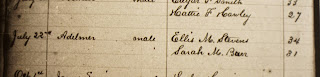 Edgar F. Smith 33
Hattie F Hawley 27
July 22nd Adelmer male Ellis M. Stevens 34
Sarah M. Burr 31